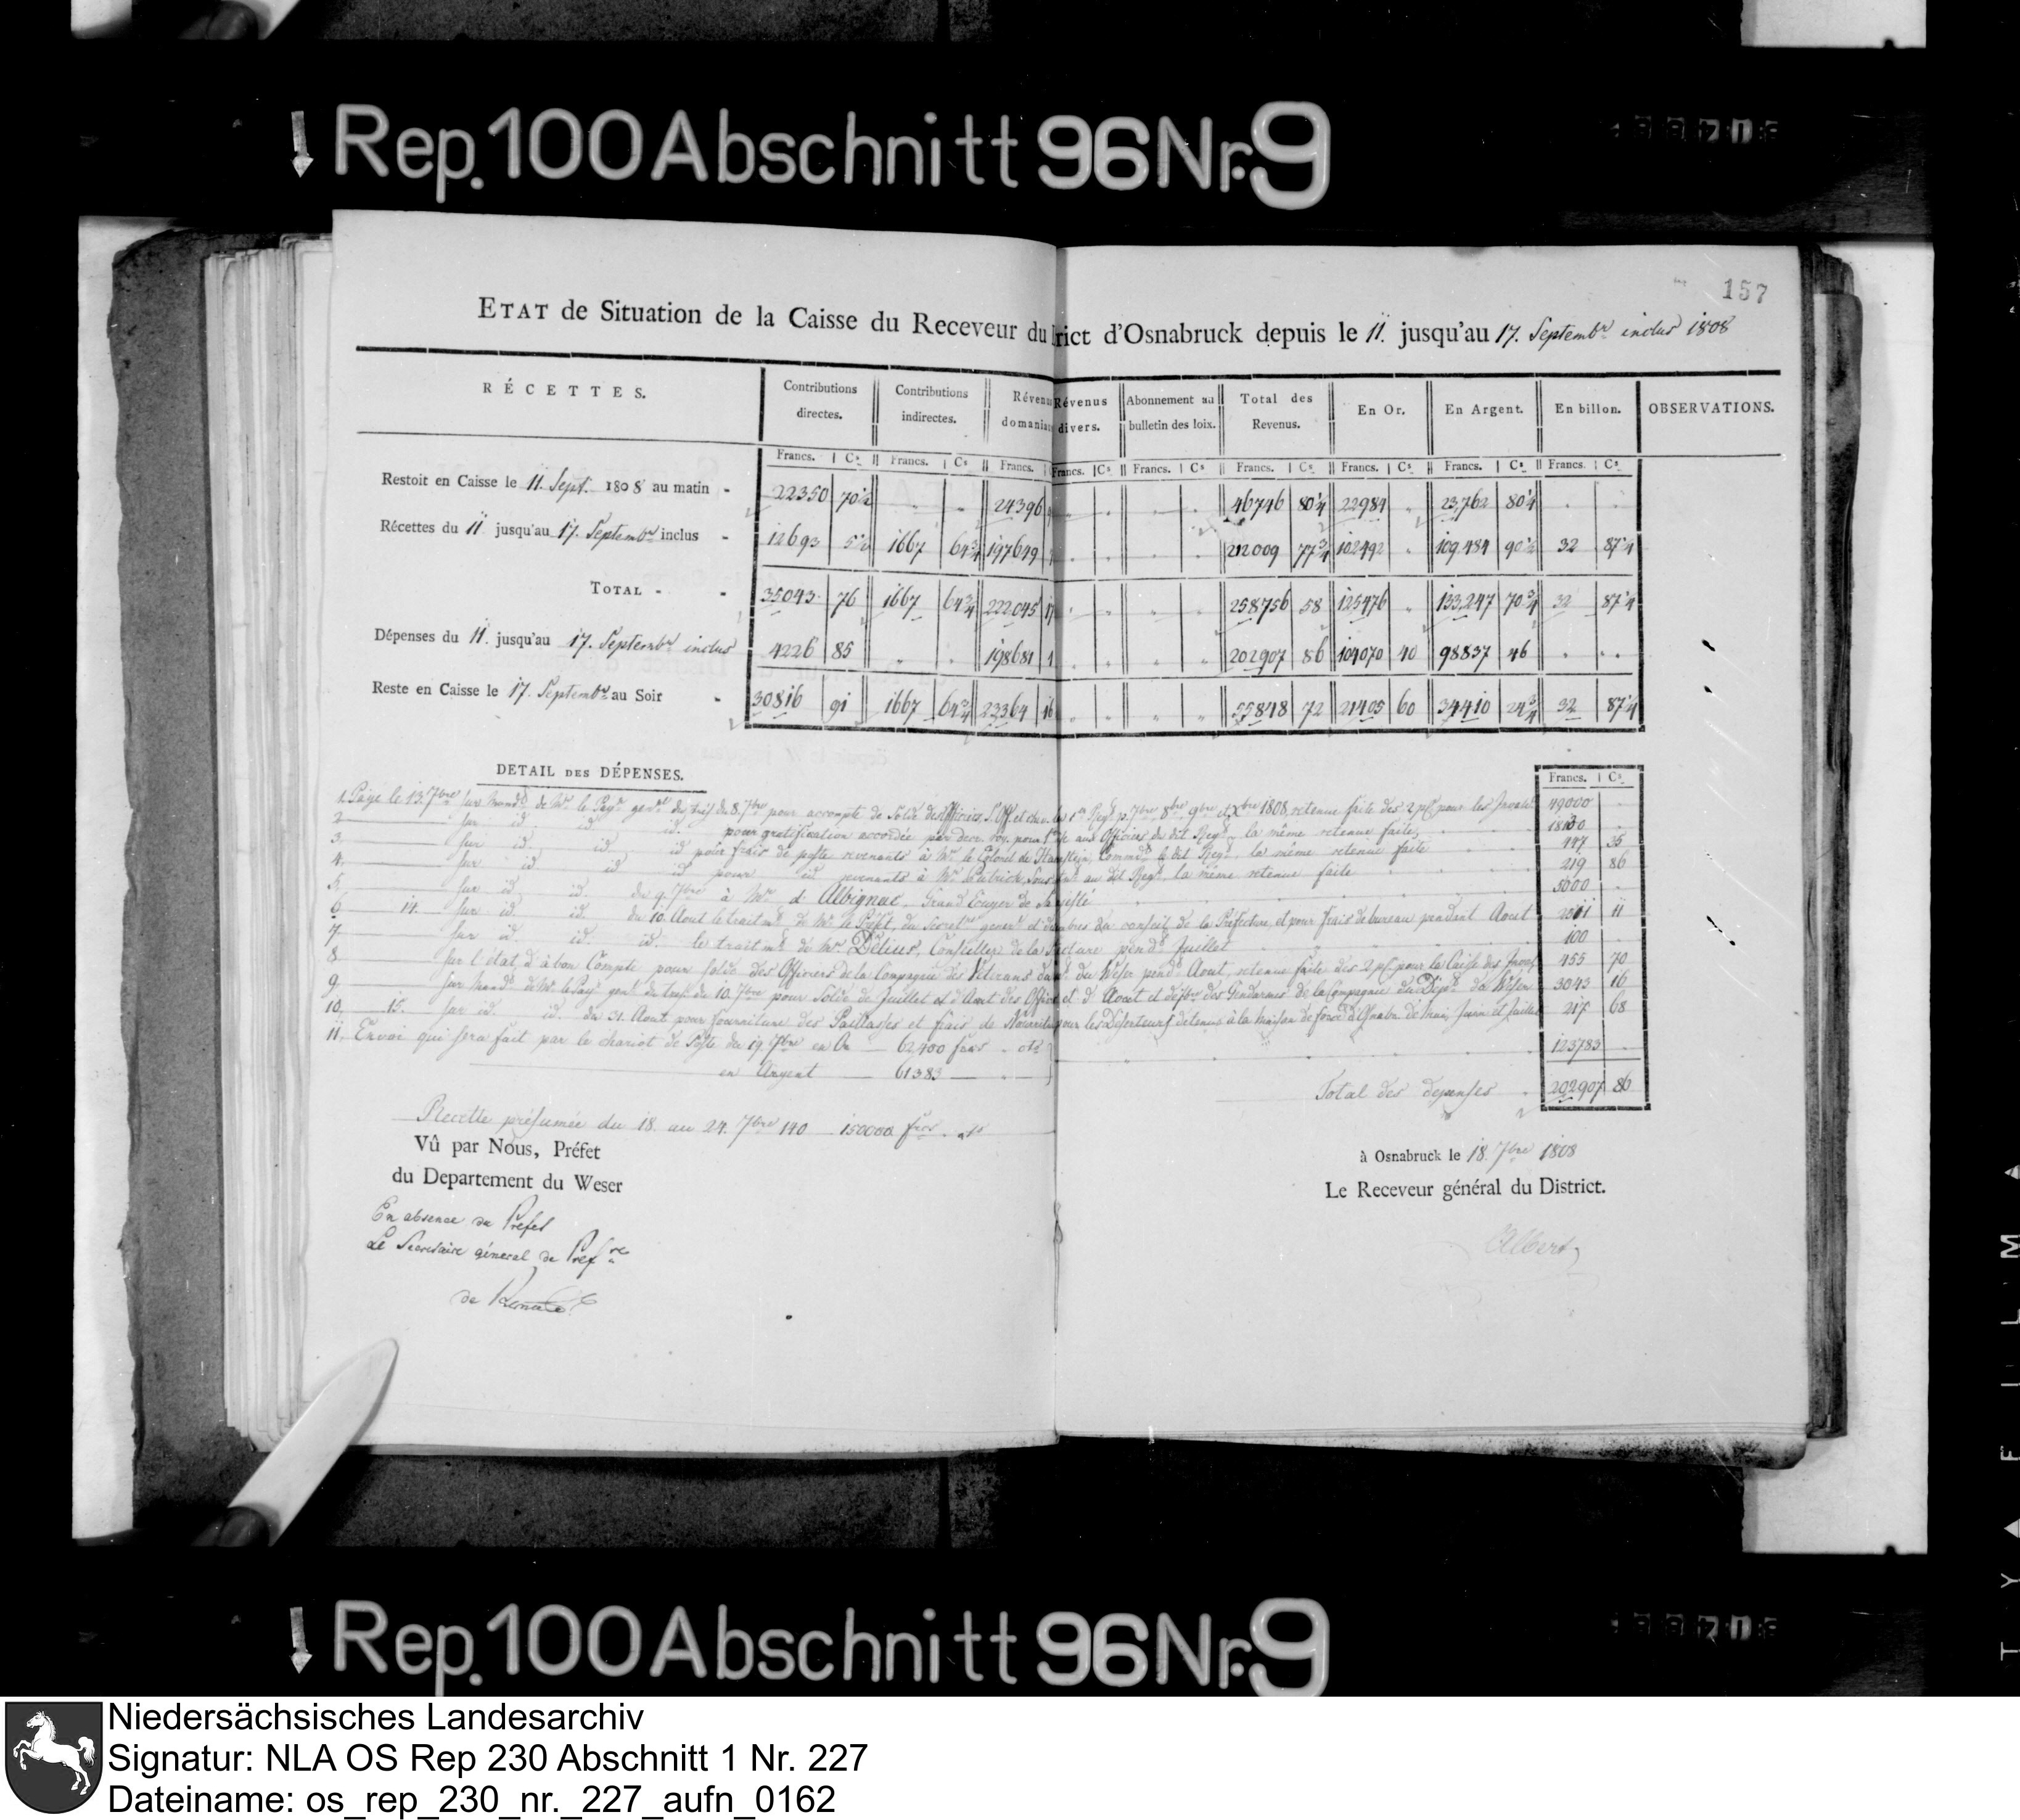 Rep. 100 Abschnitt 96 Nr. 9
157
ETAT de Situation de la Caisse du Receveur du rict d'Osnabruck depuis le 11. jusqu'au 17. Septembr inclus 1808
RÉCETTES. Contributions directes. Contributions indirectes. Réven domania Révenus divers. Abonnement au bulletin des loix. Total des Revenus. En Or. En Argent. En billon. OBSERVATIONS.
Francs. Cs. Francs. Cs Francs. Francs. Cs. Francs. Cs Francs. Cs. Francs. Cs. Francs. Cs. Francs. Cs.
Restoit en Caisse le 11. Sept. 1808 au matin - 22350 70½ 24396 46746 80¼ 22984 23,762 80¼
Récettes du 11 jusqu'au 17. Septembr inclus - 12693 5½ 1667 64¾ 197649 212009 77¾ 102492 109.484 90½ 32 87¼
TOTAL - - 35043. 76 1667 64¾ 222045 17 258756 58 125476 133,247 70¾ 32 87¼
Dépenses du 11. jusqu'au 17. Septembr inclus 4226 85 198681 1 202907 86 104070 40 98837 46
Reste en Caisse le 17. Septembr au Soir - 30816 91 1667 64¾ 23364 16 55848 72 21405 60 34410 24¾ 32 87¼
DETAIL DES DÉPENSES.
Francs. Cs.
1. Payé le 13. 7bre sur Mandt de Mr le Payr du 8. 7bre pour accompte de Solde des Officiers, S. Off. et 1er Regt p. 7bre, 8bre, 9bre et Xbre 1808, retenue faite des 2 pf. pour les 49000
2 sur id id id. pour gratification accordée par aux Officiers du dit Regt, la même retenue faite
3. sur id. id id pour frais de poste revenants à Mr le Colonel de Commdt le dit Regt, la même retenue faite 447 35
4. sur id id id pour id revenants à Mr au dit Regt, la même retenue faite 219 86
5. sur id id. du 9. 7bre à Mr d'Albignac, Grand Ecuyer de 5000
6 14. sur id. id. du 10. Aout le traitmt de Mr le Préfet, du Secret. genert et du conseil de la Préfecture, et pour frais de bureau pendant Aout 11
7 sur id id. id. le traitmt de Mr Delius, Conseiller de la pendt Juillet 100
8. sur l'état, d'à bon Compte pour solde des Officiers de la Compagnie des Vétérans du Weser pendt Aout, retenue faite des 2 pf. pour la Caisse des 455 70
9. sur Mandt de Mr le Payr genl du 10. 7bre pour Solde de Juillet et d'Aout des Offic et d'Aout et des Gendarmes de la Compagnie du Dépt du Weser 3043 16
10. 15. sur id. id. du 31. Aout pour fourniture des Paillasses et frais de Nourritu pour les Déserteurs détenus à la maison de force d'Osnabr. de Mai, Juin et Juillet 217 68
11. Envoi qui sera fait par le chariot de Poste du 19. 7bre en Or — 62400 frcs . cts
en Argent — 61383 — 123783
Total des depenses 202907 86
Recette présumée du 18. au 24. 7bre 140 150000 frcs . cts
Vû par Nous, Préfet
du Departement du Weser
En absence du Préfet
Le Secretaire géneral de Prefre
à Osnabruck le 18. 7bre 1808
Le Receveur général du District.
Albers
Rep. 100 Abschnitt 96 Nr. 9
Niedersächsisches Landesarchiv
Signatur: NLA OS Rep 230 Abschnitt 1 Nr. 227
Dateiname: os_rep_230_nr._227_aufn_0162